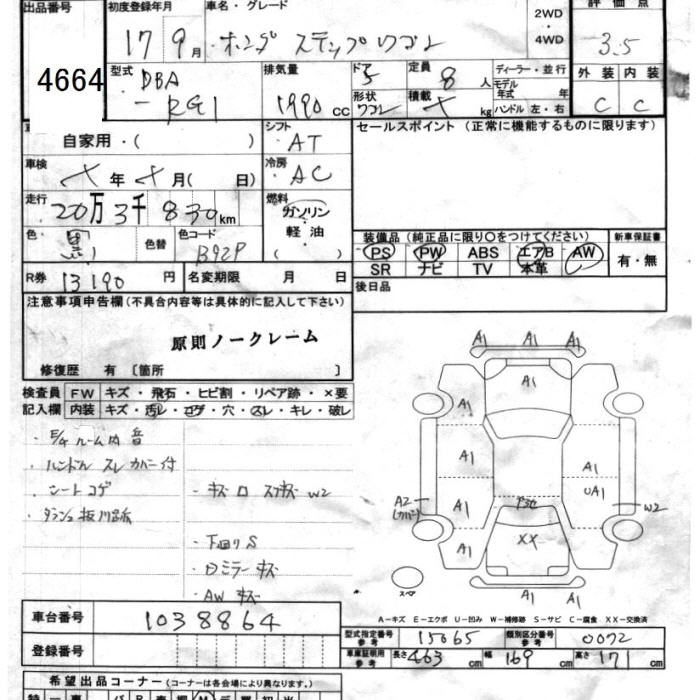 出品番号 初度登録年月 車名・グレード 2WD ・ 4WD 評価点
4664 17 9月 ホンダ ステップワゴン 3.5
型式 DBA - RG1 排気量 1990 cc ドア 5 形状 ワゴン 定員 8人 積載 kg ディーラー・並行 モデル年式 年 ハンドル 左・右 外装 内装 C C
自家用・( ) シフト AT セールスポイント (正常に機能するものに限ります)
車検 年 月( 日) 冷房 AC
走行 20万3千830km 燃料 ガソリン ・ 軽油
色 色替 色コード B92P 装備品 (純正品に限り○をつけてください) 新車保証書
PS PW ABS エアB AW 有・無
SR ナビ TV 本革
R券 13190 円 名変期限 月 日 後日品
注意事項申告欄(不具合内容等は具体的に記入して下さい)
原則ノークレーム
修復歴 有〔箇所 〕
検査員 FW キズ・飛石・ヒビ割・リペア跡・×要
記入欄 内装 キズ・汚レ・コゲ・穴・スレ・キレ・破レ
・ハンドル スレ カバー付
・シートコゲ
・キズ
・下回りS
・Dミラーキズ
・AWキズ
A1 A1 A1
A1
A1
A1 A1
A1 UA1
A2 (カバー) W2
XX
A1
A1 A1 A1
スペア
A-キズ E-エクボ U-凹み W-補修跡 S-サビ C-腐食 XX-交換済
車台番号 1038864
型式指定番号 参考 15065 類別区分番号 参考 0072
登録番号 車庫証明用 参考 長さ 463 cm 幅 169 cm 高さ 171 cm
希望出品コーナー (コーナーは各会場により異なります。)